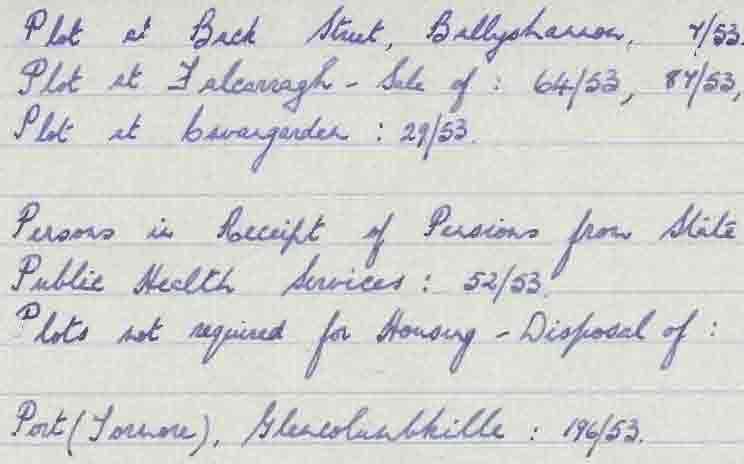 Plot at Back Street, Ballyshannon, 7/53.
Plot at Falcarragh - Sale of : 64/53, 87/53,
Plot at Cavangarden : 29/53.
Persons in Receipt of Pensions from State
Public Health Services : 52/53.
Plots not required for Housing - Disposal of :
Port (Tormore), Glencolumbkille : 196/53.